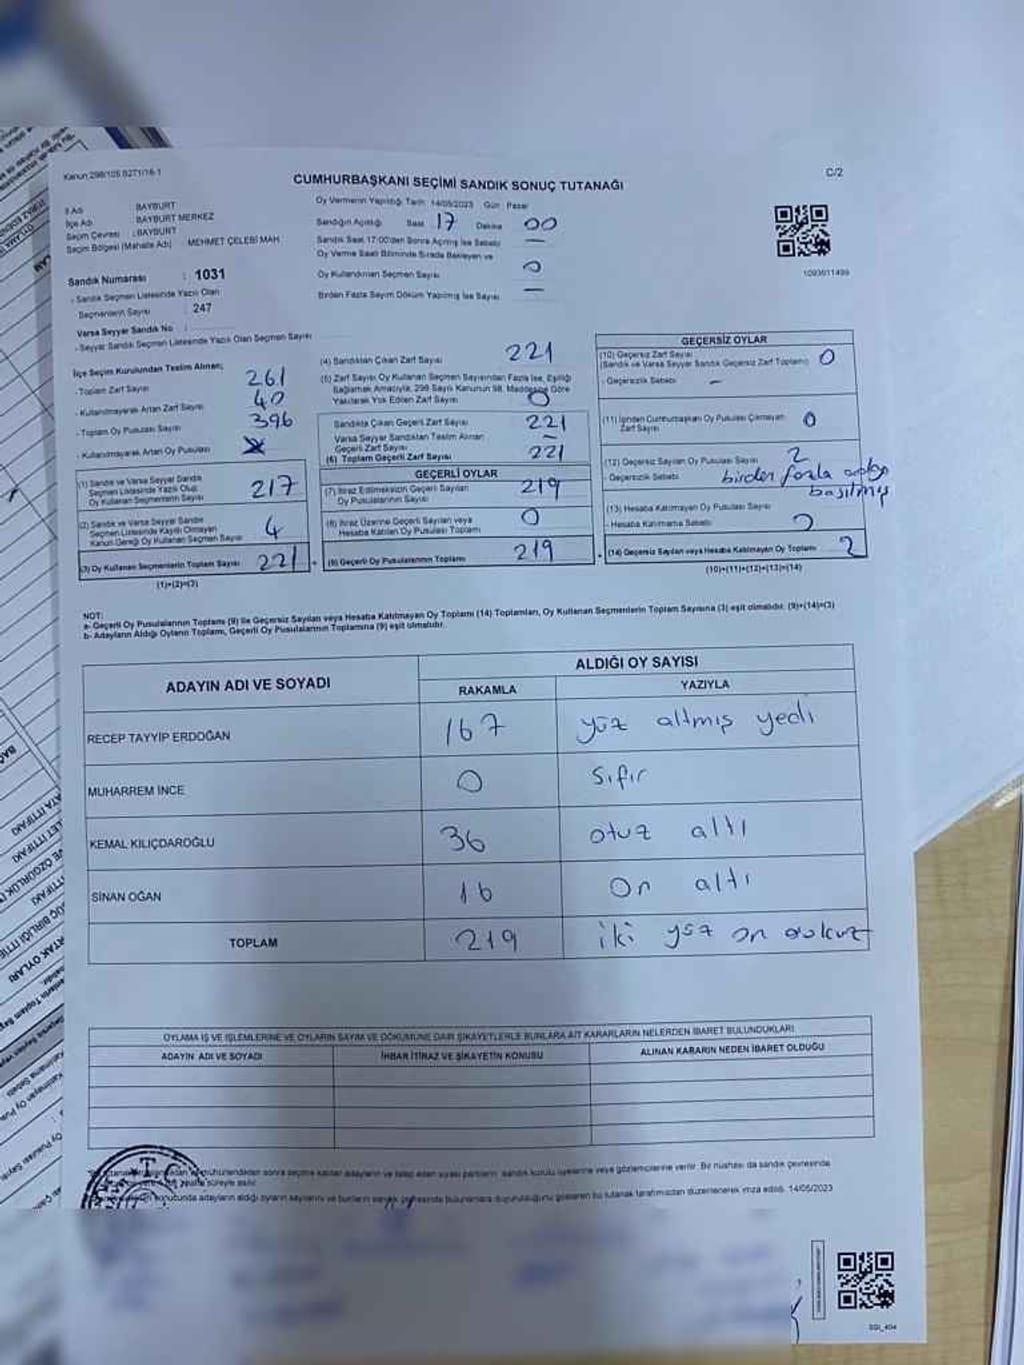 Kanun 298/105 6271/16-1
C/2
CUMHURBAŞKANI SEÇİMİ SANDIK SONUÇ TUTANAĞI
İl Adı BAYBURT
İlçe Adı BAYBURT MERKEZ
Seçim Çevresi : BAYBURT
Seçim Bölgesi (Mahalle Adı) MEHMET ÇELEBİ MAH
Sandık Numarası : 1031
- Sandık Seçmen Listesinde Yazılı Olan
Seçmenlerin Sayısı : 247
Varsa Seyyar Sandık No :
- Seyyar Sandık Seçmen Listesinde Yazılı Olan Seçmen Sayısı
Oy Vermenin Yapıldığı Tarih 14/05/2023 Gün Pazar
Sandığın Açıldığı Saat 17 Dakika 00
Sandık Saat 17:00'den Sonra Açılmış İse Sebebi —
Oy Verme Saati Bitiminde Sırada Bekleyen ve
Oy Kullandırılan Seçmen Sayısı 0
Birden Fazla Sayım Döküm Yapılmış İse Sayısı —
1093611499
İlçe Seçim Kurulundan Teslim Alınan;
- Toplam Zarf Sayısı 261
- Kullanılmayarak Artan Zarf Sayısı 40
- Toplam Oy Pusulası Sayısı 396
- Kullanılmayarak Artan Oy Pusulası
(1) Sandık ve Varsa Seyyar Sandık
Seçmen Listesinde Yazılı Olup
Oy Kullanan Seçmenlerin Sayısı 217
(2) Sandık ve Varsa Seyyar Sandık
Seçmen Listesinde Kaydı Olmayan
Kanun Gereği Oy Kullanan Seçmen Sayısı 4
(3) Oy Kullanan Seçmenlerin Toplam Sayısı 221
(1)+(2)=(3)
(4) Sandıktan Çıkan Zarf Sayısı 221
(5) Zarf Sayısı Oy Kullanan Seçmen Sayısından Fazla İse, Eşitliği
Sağlamak Amacıyla, 298 Sayılı Kanunun 98. Maddesine Göre
Yakılarak Yok Edilen Zarf Sayısı 0
Sandıkta Çıkan Geçerli Zarf Sayısı 221
Varsa Seyyar Sandıktan Teslim Alınan
Geçerli Zarf Sayısı —
(6) Toplam Geçerli Zarf Sayısı 221
GEÇERLİ OYLAR
(7) İtiraz Edilmeksizin Geçerli Sayılan
Oy Pusulalarının Sayısı 219
(8) İtiraz Üzerine Geçerli Sayılan veya
Hesaba Katılan Oy Pusulası Toplamı 0
(9) Geçerli Oy Pusulalarının Toplamı 219
GEÇERSİZ OYLAR
(10) Geçersiz Zarf Sayısı 0
(Sandık ve Varsa Seyyar Sandık Geçersiz Zarf Toplamı)
- Geçersizlik Sebebi —
(11) İçinden Cumhurbaşkanı Oy Pusulası Çıkmayan
Zarf Sayısı 0
(12) Geçersiz Sayılan Oy Pusulası Sayısı 2
- Geçersizlik Sebebi birden fazla
basılmış
(13) Hesaba Katılmayan Oy Pusulası Sayısı
- Hesaba Katılmama Sebebi
(14) Geçersiz Sayılan veya Hesaba Katılmayan Oy Toplamı 2
(10)+(11)+(12)+(13)=(14)
NOT:
a- Geçerli Oy Pusulalarının Toplamı (9) ile Geçersiz Sayılan veya Hesaba Katılmayan Oy Toplamı (14) Toplamları, Oy Kullanan Seçmenlerin Toplam Sayısına (3) eşit olmalıdır. (9)+(14)=(3)
b- Adayların Aldığı Oyların Toplamı, Geçerli Oy Pusulalarının Toplamına (9) eşit olmalıdır.
ADAYIN ADI VE SOYADI
ALDIĞI OY SAYISI
RAKAMLA YAZIYLA
RECEP TAYYİP ERDOĞAN 167 yüz altmış yedi
MUHARREM İNCE 0 Sıfır
KEMAL KILIÇDAROĞLU 36 otuz altı
SİNAN OĞAN 16 On altı
TOPLAM 219 iki yüz on dokuz
OYLAMA İŞ VE İŞLEMLERİNE VE OYLARIN SAYIM VE DÖKÜMÜNE DAİR ŞİKAYETLERLE BUNLARA AİT KARARLARIN NELERDEN İBARET BULUNDUKLARI
ADAYIN ADI VE SOYADI İHBAR İTİRAZ VE ŞİKAYETİN KONUSU ALINAN KARARIN NEDEN İBARET OLDUĞU
mühürlendikten sonra seçime katılan adayların ve talep eden siyasi partilerin sandık kurulu üyelerine veya gözlemcilerine verilir. Bir nüshası da sandık çevresinde
süreyle asılır.
sonucunda adayların aldığı oyların sayılarını ve bunların sandık çevresinde bulunanlara duyurulduğunu gösteren bu tutanak tarafımızdan düzenlenerek imza edildi. 14/05/2023
T.C.
SGI_404